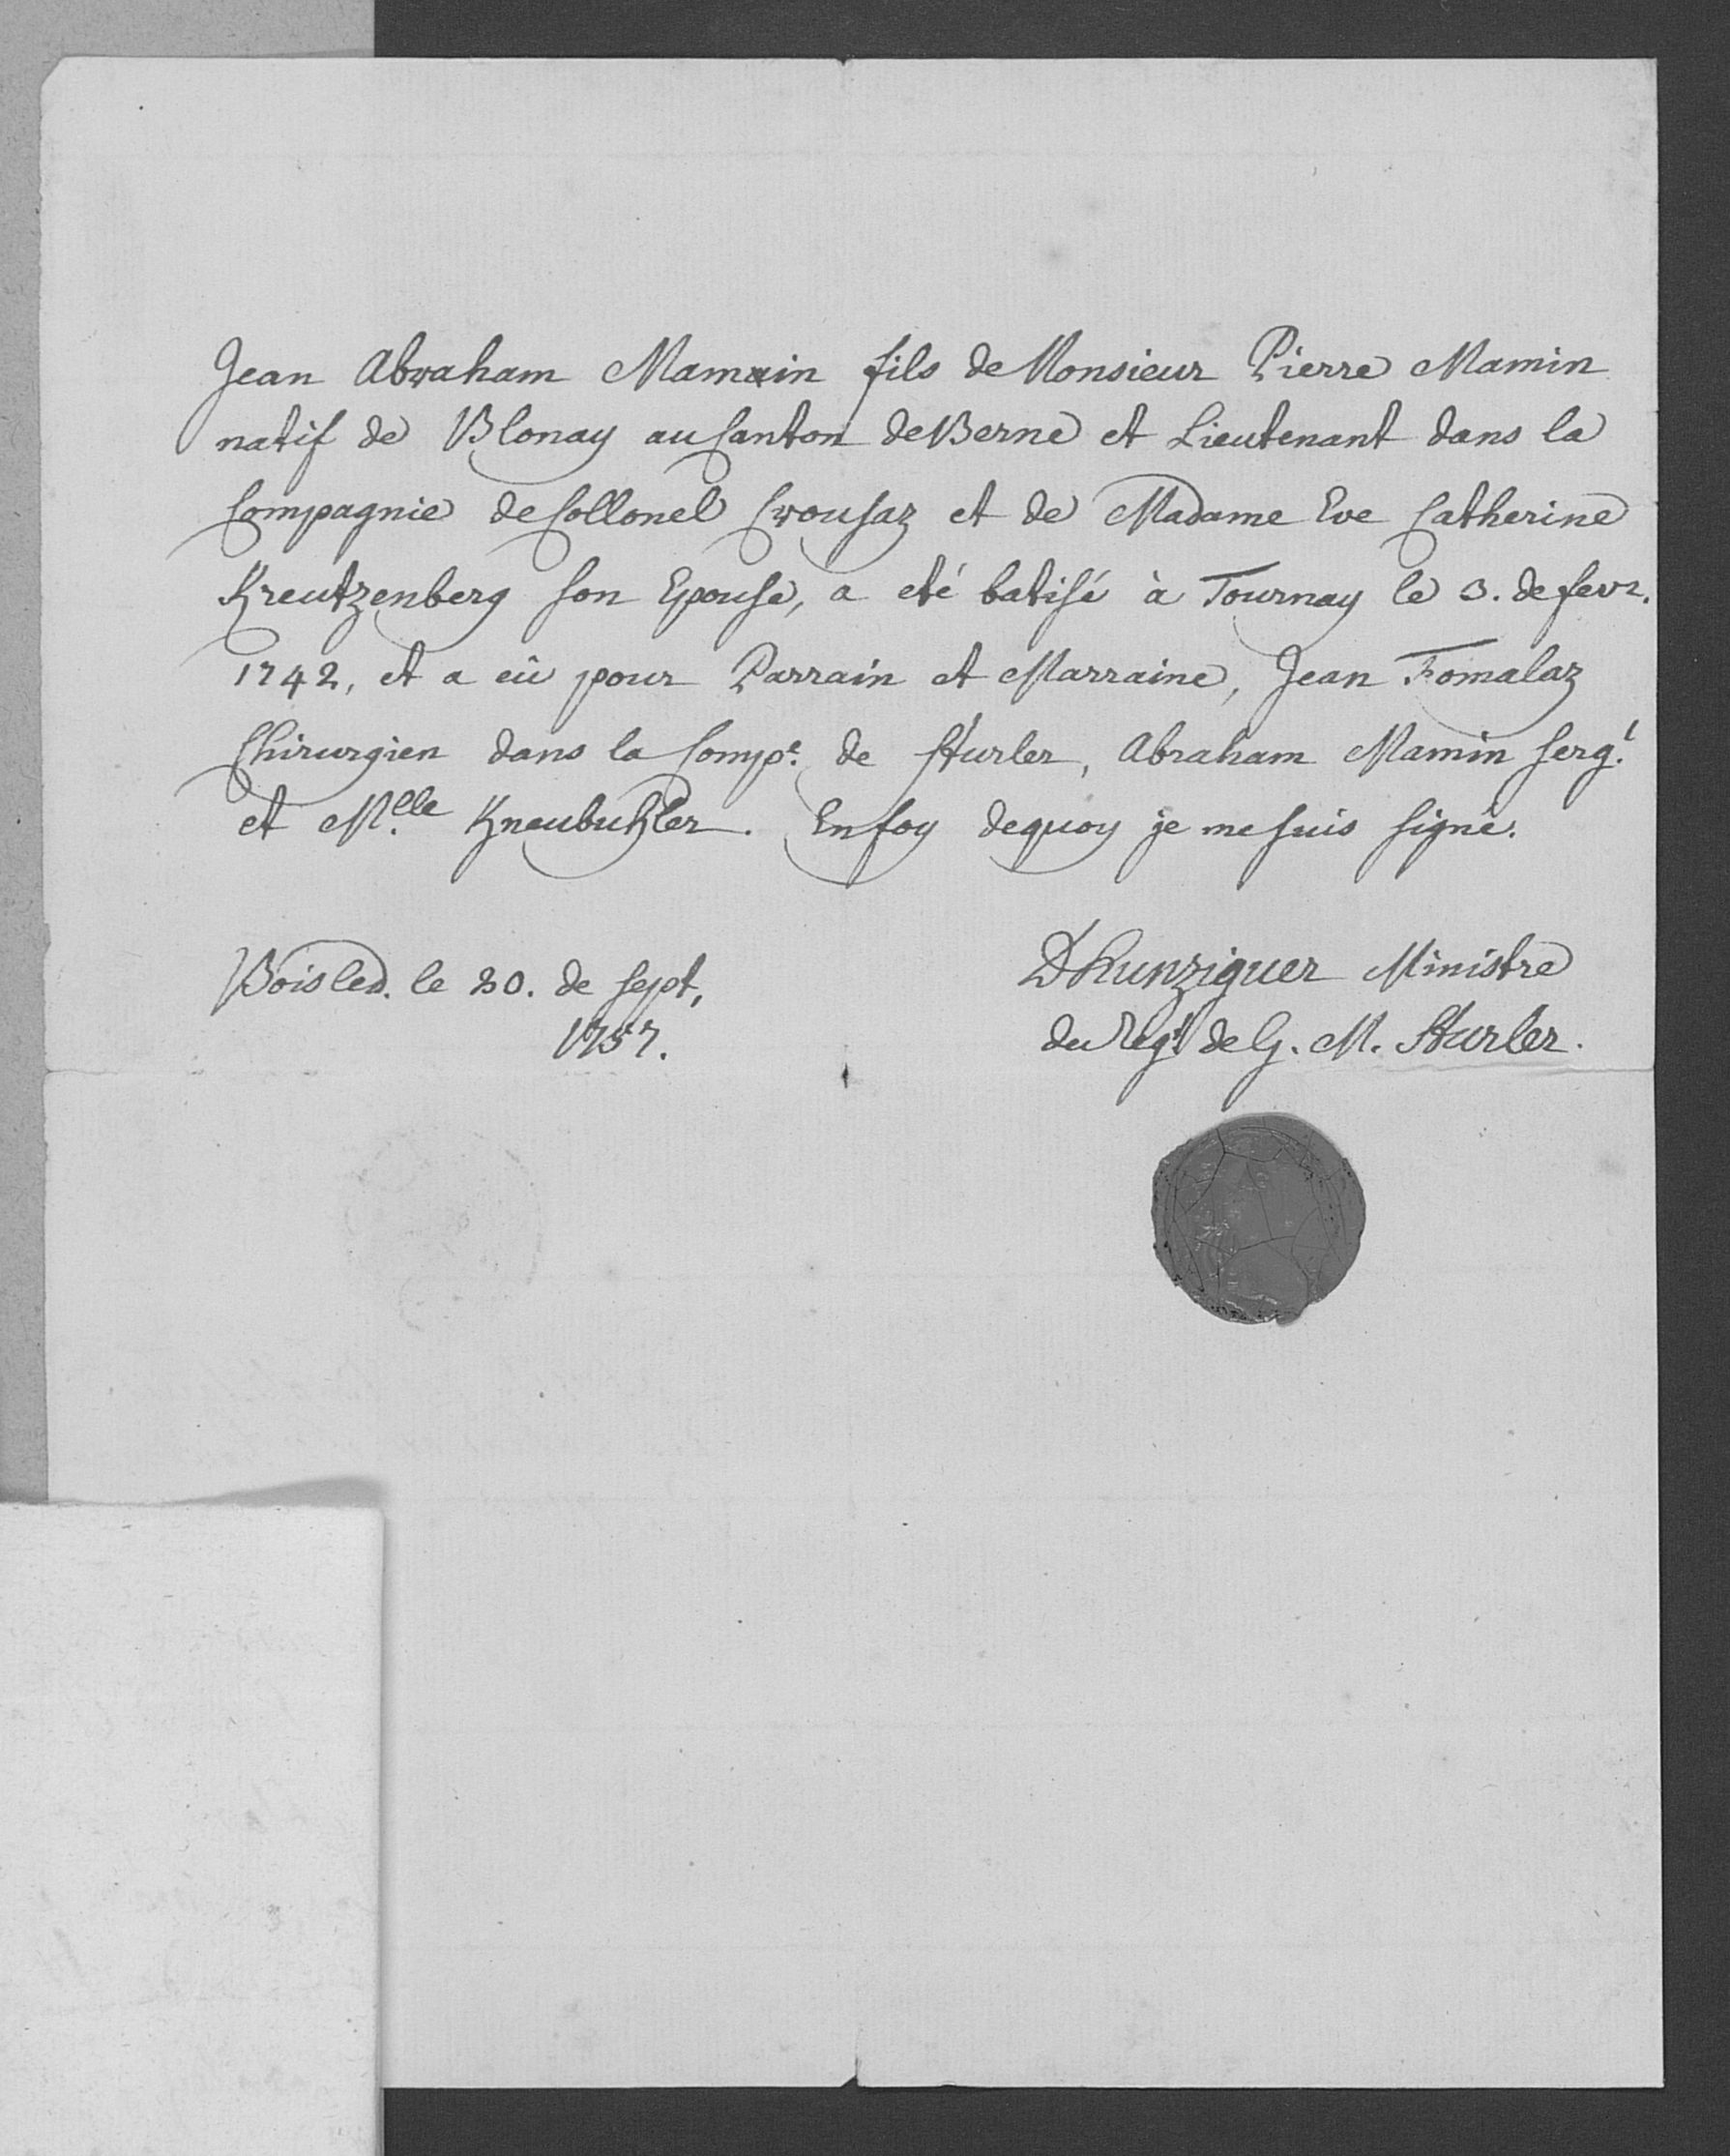 Jean Abraham Mamin fils de Monsieur Pierre Mamin
natif de Blonay au Canton de Berne et Lieutenant dans la
Compagnie de Collonel Crousaz et de Madame Eve Catherine
Kreutzenberg son Epouse, a eté batisé à Tournay le 3. de fevr.
1742, et a eû pour Parrain et Marraine, Jean Fomalaz
Chirurgien dans la Compe. de Sturler, Abraham Mamin sergt.
et Mlle. Kneubuhler. En foy dequoy je me suis signé.
Bois led. le 20. de sept,
1757.
DHunziguer Ministre
du Regt. de G. M. Sturler.